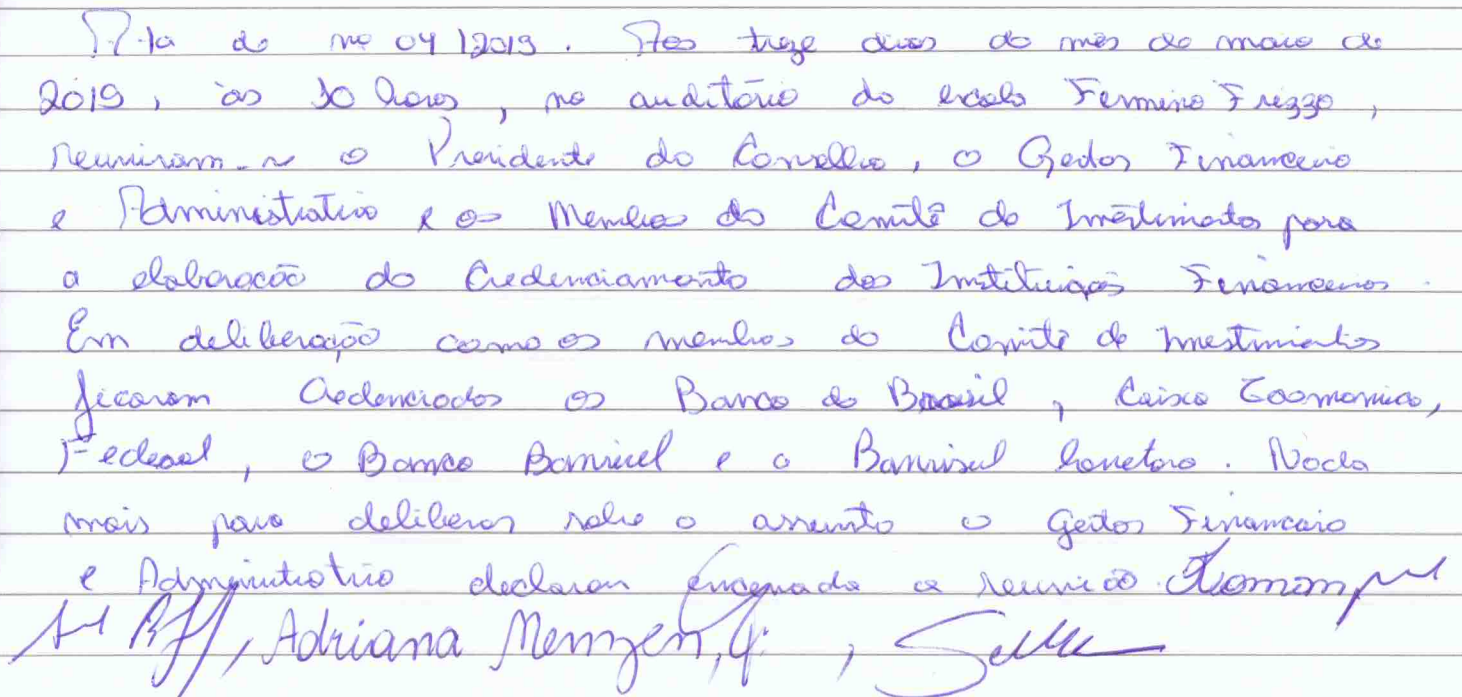 Ata de nº 04/2019. Aos treze dias do mês de maio de
2019, às 10 horas, no auditório da escola Fermino Frizzo,
reuniram-se o Presidente do Conselho, o Gestor Financeiro
e Administrativo e os Membros do Comitê de Investimentos para
a elaboração do Credenciamento das Instituições Financeiras.
Em deliberação com os membros do Comitê de Investimentos
ficaram Credenciados os Banco do Brasil, Caixa Economica,
Federal, o Banco Banrisul e a Banrisul Corretora. Nada
mais para deliberar sobre o assunto o Gestor Financeiro
e Administrativo declarou encerrada a reunião.
Adriana Menzen